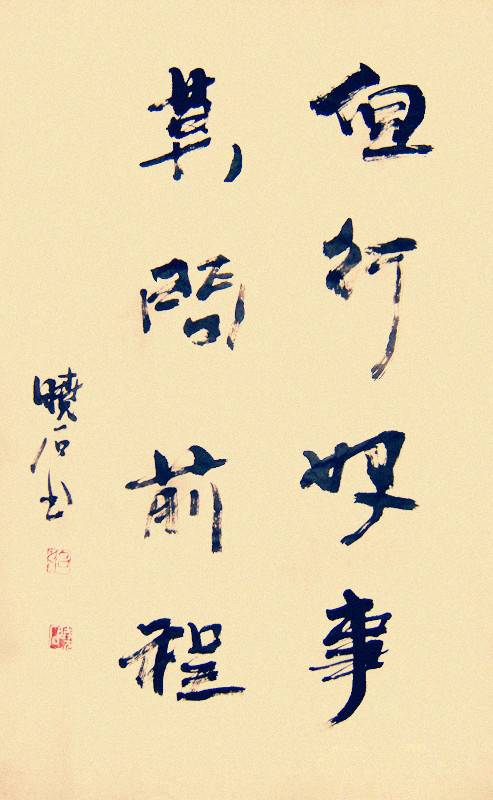 但行好事
莫问前程
晓石书